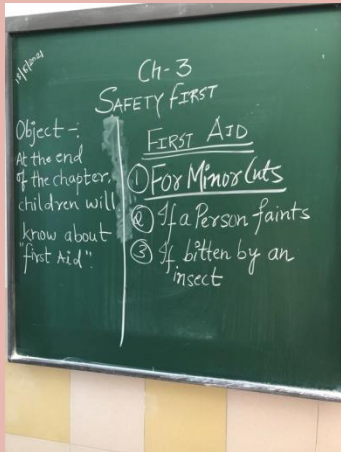 Ch-3
SAFETY FIRST
Object -:
At the end
of the chapter,
children will
know about
"first Aid".
FIRST AID
① For Minor Cuts
② If a Person faints
③ If bitten by an
insect